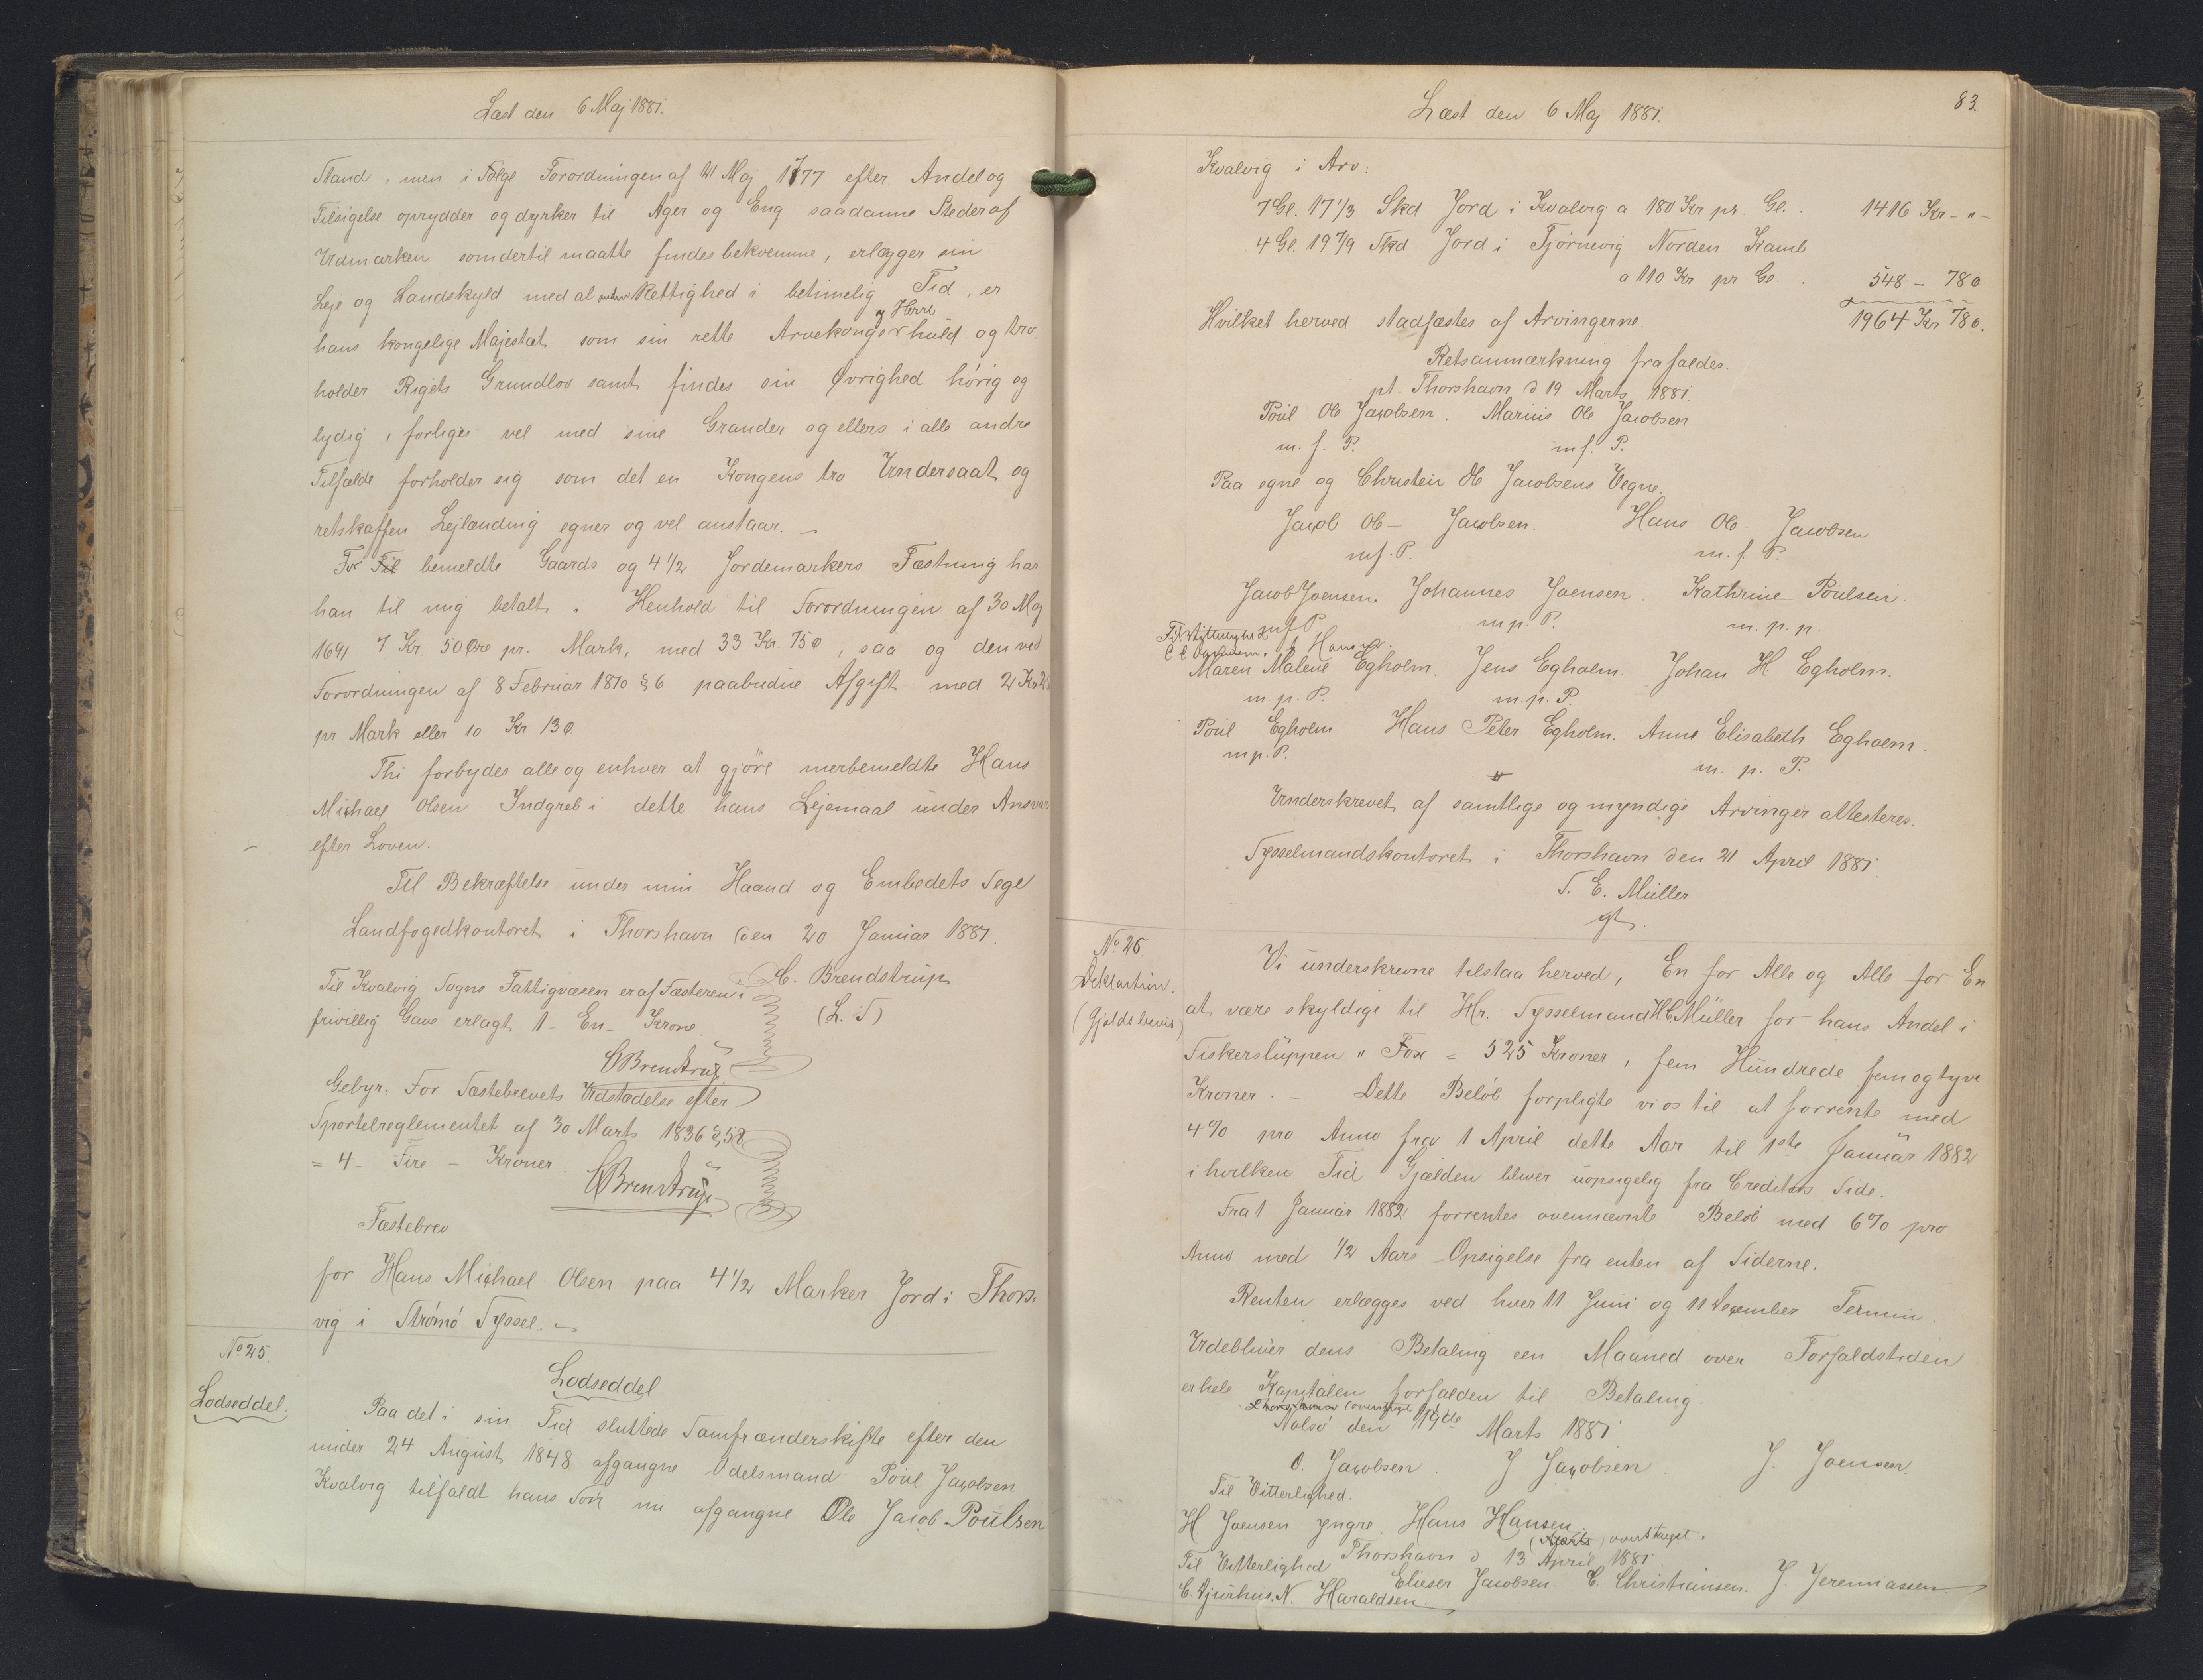 Læst den 6 Maj 1881.
Stand, men i Følge Forordningen af 21 Maj 1777 efter Andel og
Tilsigelse oprydder og dyrker til Ager og Eng saadanne Steder af
Udmarken som dertil maatte findes bekvemme, erlægger sin
Leje og Landskyld med al anden Rettighed i betimelig Tid, er
hans kongelige Majestæt som sin rette Arvekonge og Herre huld og tro.
holder Rigets Grundlov samt findes sin Øvrighed hørig og
lydig, forliges vel med sine Grander og ellers i alle andre
Tilfælde forholder sig som det en Kongens tro Undersaat og
retskaffen Lejlænding egner og vel anstaar. -
For Til bemeldte Gaards og 4 1/2 Jordemarkers Fæstning har
han til mig betalt i Henhold til Forordningen af 30 Maj
1691 7 Kr. 50 Øre pr. Mark, med 33 Kr. 75 Ø, saa og den ved
Forordningen af 8 Februar 1810 § 6 paabudne Afgift med 2 Kr 25
pr Mark eller 10 Kr 13 Ø
Thi forbydes alle og enhver at gjöre merbemeldte Hans
Michael Olsen Indgreb i dette hans Lejemaal under Ansvar
efter Loven.
Til Bekræftelse under min Haand og Embedets Segl
Landfogedkontoret i Thorshavn den 20 Januar 1881.
C. Brendstrup
(L. S)
Til Kvalvig Sogns Fattigvæsen er af Fæsteren i
frivillig Gave erlagt 1 - En - Krone.
CBrendstrup
Gebyr. For Fæstebrevets Udstædelse efter
Sportelreglementet af 30 Marts 1836 § 58
= 4 - Fire - Kroner.
CBrendstrup
Fæstebrev
for Hans Michael Olsen paa 4 1/2 Marker Jord i Thors-
vig i Strømø Syssel. -
No 25.
Lodseddel.
Lodseddel
Paa det i sin Tid sluttede Samfrænderskifte efter den
under 24 August 1848 afgangne Odelsmand Poul Jacobsen
Kvalvig tilfaldt hans Søn nu afgangne Ole Jacob Poulsen
Læst den 6 Maj 1881.
83.
Kvalvig i Arv:
7 Gl. 17 1/3 Skd Jord i Kvalvig a 180 Kr pr. Gl. . 1416 Kr - " -
4 Gl. 19 7/9 Skd Jord i Tjørnevig Norden Kamb
a 110 Kr pr Gl. . 548 - 78 Ø
Hvilket herved stadfæstes af Arvingerne. 1964 Kr 78 Ø.
Retsanmærkning frafaldes.
pt. Thorshavn d 19 Marts 1881.
Poul Ob Jacobsen. Marius Ob Jacobsen
m. f. P. m f. P.
Paa egne og Christen Ob Jacobsens Vegne.
Jacob Ob - Jacobsen. Hans Ob - Jacobsen
m f. P. m. f. P.
Jacob Joensen Johannes Joensen. Kathrine Poulsen.
m f P. m p. P. m. p. p.
Til Vitterlighed
Maren Malene Egholm. Jens Egholm. Johan H Egholm.
m. p. P. m. p. P.
Poul Egholm Hans Peter Egholm. Anne Elisabeth Egholm.
m p. P. m. p. P.
Underskrevet af samtlige og myndige Arvinger attesteres.
Sysselmandskontoret i Thorshavn den 21 April 1881.
S. E. Müller
gt.
No 26.
Deklaration.
(Gjældsbevis)
Vi underskrevne tilstaa herved, En for Alle og Alle for En
at være skyldige til Hr. Sysselmand HC Müller for hans Andel i
Fiskersluppen " Fox = 525 Kroner, fem Hundrede fem og tyve
Kroner. - Dette Beløb forpligte vi os til at forrente med
4% pro Anno fra 1 April dette Aar til 1ste Januar 1882
i hvilken Tid Gjælden bliver uopsigelig fra Creditors Side.
Fra 1 Januar 1882 forrentes ovennævnte Beløb med 6% pro
Anno med 1/2 Aars Opsigelse fra enten af Siderne.
Renten erlægges ved hver 11 Juni og 11 December Termin.
Udebliver dens Betaling een Maaned over Forfaldstiden
er hele Kapitalen forfalden til Betaling.
Thorshavn (overstreget
Nolsø den 19de Marts 1881
O. Jacobsen. J. Jacobsen J. Joensen.
Til Vitterlighed.
H Joensen yngre Hans Hansen.
(Marts) overstreget.
Thorshavn d 13 April 1881.
Til Vitterlighed Elieser Jacobsen. C. Christiansen. J. Jeremiassen
C. Djurhus. N. Haraldsen.